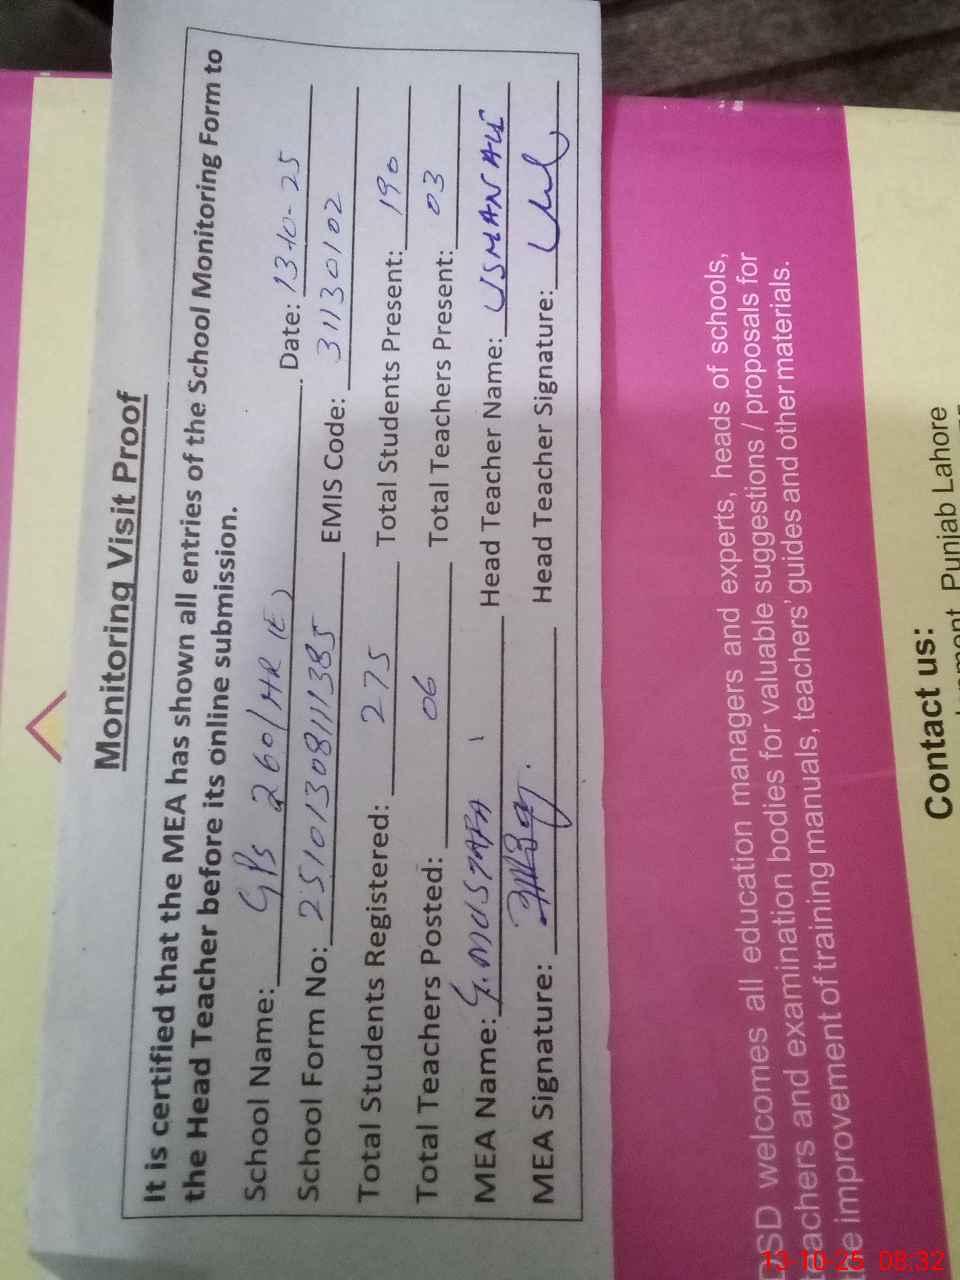 Monitoring Visit Proof
It is certified that the MEA has shown all entries of the School Monitoring Form to
the Head Teacher before its online submission.
School Name: GPS 260/HR (E) . Date: 13-10-25
School Form No: 2510130811111385 EMIS Code: 31130102
Total Students Registered: 275 Total Students Present: 190
Total Teachers Posted: 06 Total Teachers Present: 03
MEA Name: G. MUSTAFA Head Teacher Name: USMAN ALI
MEA Signature: Head Teacher Signature:
SD welcomes all education managers and experts, heads of schools,
achers and examination bodies for valuable suggestions / proposals for
e improvement of training manuals, teachers' guides and other materials.
Contact us:
Punjab Lahore
13-10-25 08:32